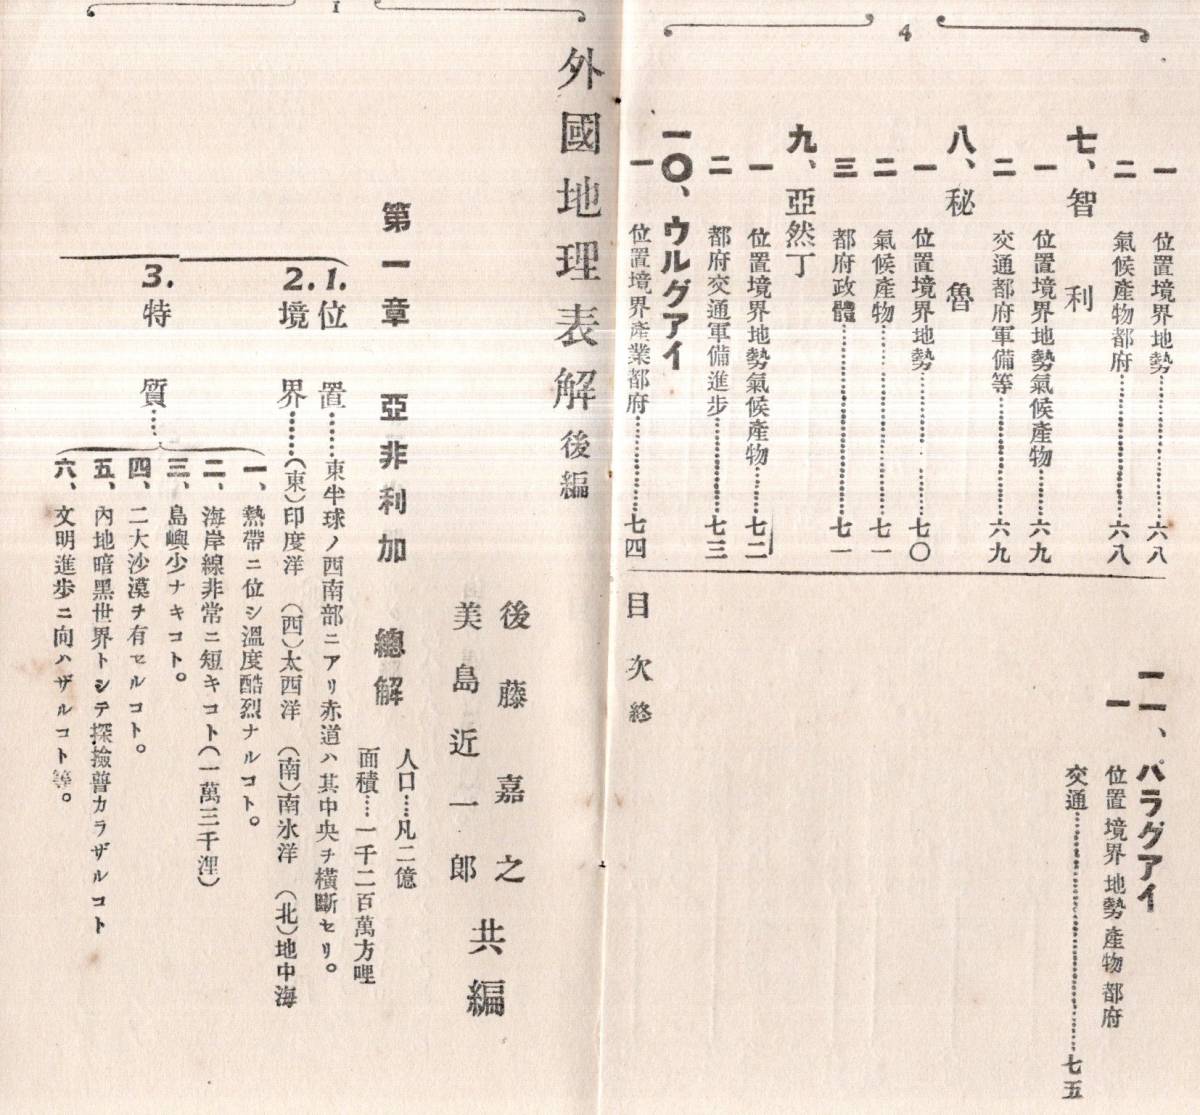 4
一 位置境界地勢……六八
二 氣候產物都府……六八
七、智利
一 位置境界地勢氣候產物……六九
二 交通都府軍備等……六九
八、秘魯
一 位置境界地勢……七〇
二 氣候產物……七一
三 都府政體……七一
九、亞然丁
一 位置境界地勢氣候產物……七二
二 都府交通軍備進步……七三
一〇、ウルグアイ
一 位置境界產業都府……七四
一一、パラグアイ
一 位置境界地勢產物都府
交通……七五
目次終
1
外國地理表解後編
後藤嘉之
美島近一郎
共編
第一章 亞非利加 總解
人口……凡二億
面積……一千二百萬方哩
1. 位置……東半球ノ西南部ニアリ赤道ハ其中央ヲ橫斷セリ。
2. 境界……(東)印度洋 (西)太西洋 (南)南氷洋 (北)地中海
3. 特質……
一、熱帶ニ位シ溫度酷烈ナルコト。
二、海岸線非常ニ短キコト(一萬三千浬)
三、島嶼少ナキコト。
四、二大沙漠ヲ有セルコト。
五、內地暗黑世界トシテ探撿普カラザルコト
六、文明進歩ニ向ハザルコト等。